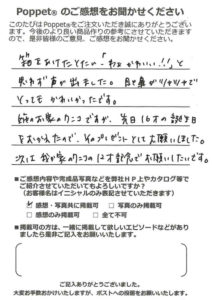 Poppet® のご感想をお聞かせください
このたびは Poppet® をご注文いただき誠にありがとうござい
ます。今後のより良い商品作りの参考にさせていただきます
ので、是非皆様のご意見、ご感想をお聞かせください。
箱をあけたとたん「わぁ かわいい!!」と
思わず声が出ました。目と鼻がツヤツヤで
とってもかわいかったです。
のネコですが、先日16才の誕生日
をむかえたので、そのプレゼントとしてお願いしました。
次は我が家のネコの
お願いしたいです。
■ご感想内容や完成品写真などを弊社HP上やカタログ等で
ご紹介させていただいてもよろしいですか?
(お客様名はイニシャルのみ表記させていただきます)
感想・写真共に掲載可 □写真のみ掲載可
□感想のみ掲載可 □全て不可
■掲載可の方は、一緒に掲載して欲しいエピソードなどがあり
ましたら是非ご記入をお願いいたします。
ご記入ありがとうございました。
大変お手数おかけいたしますが、ポストへの投函をお願いいたします。